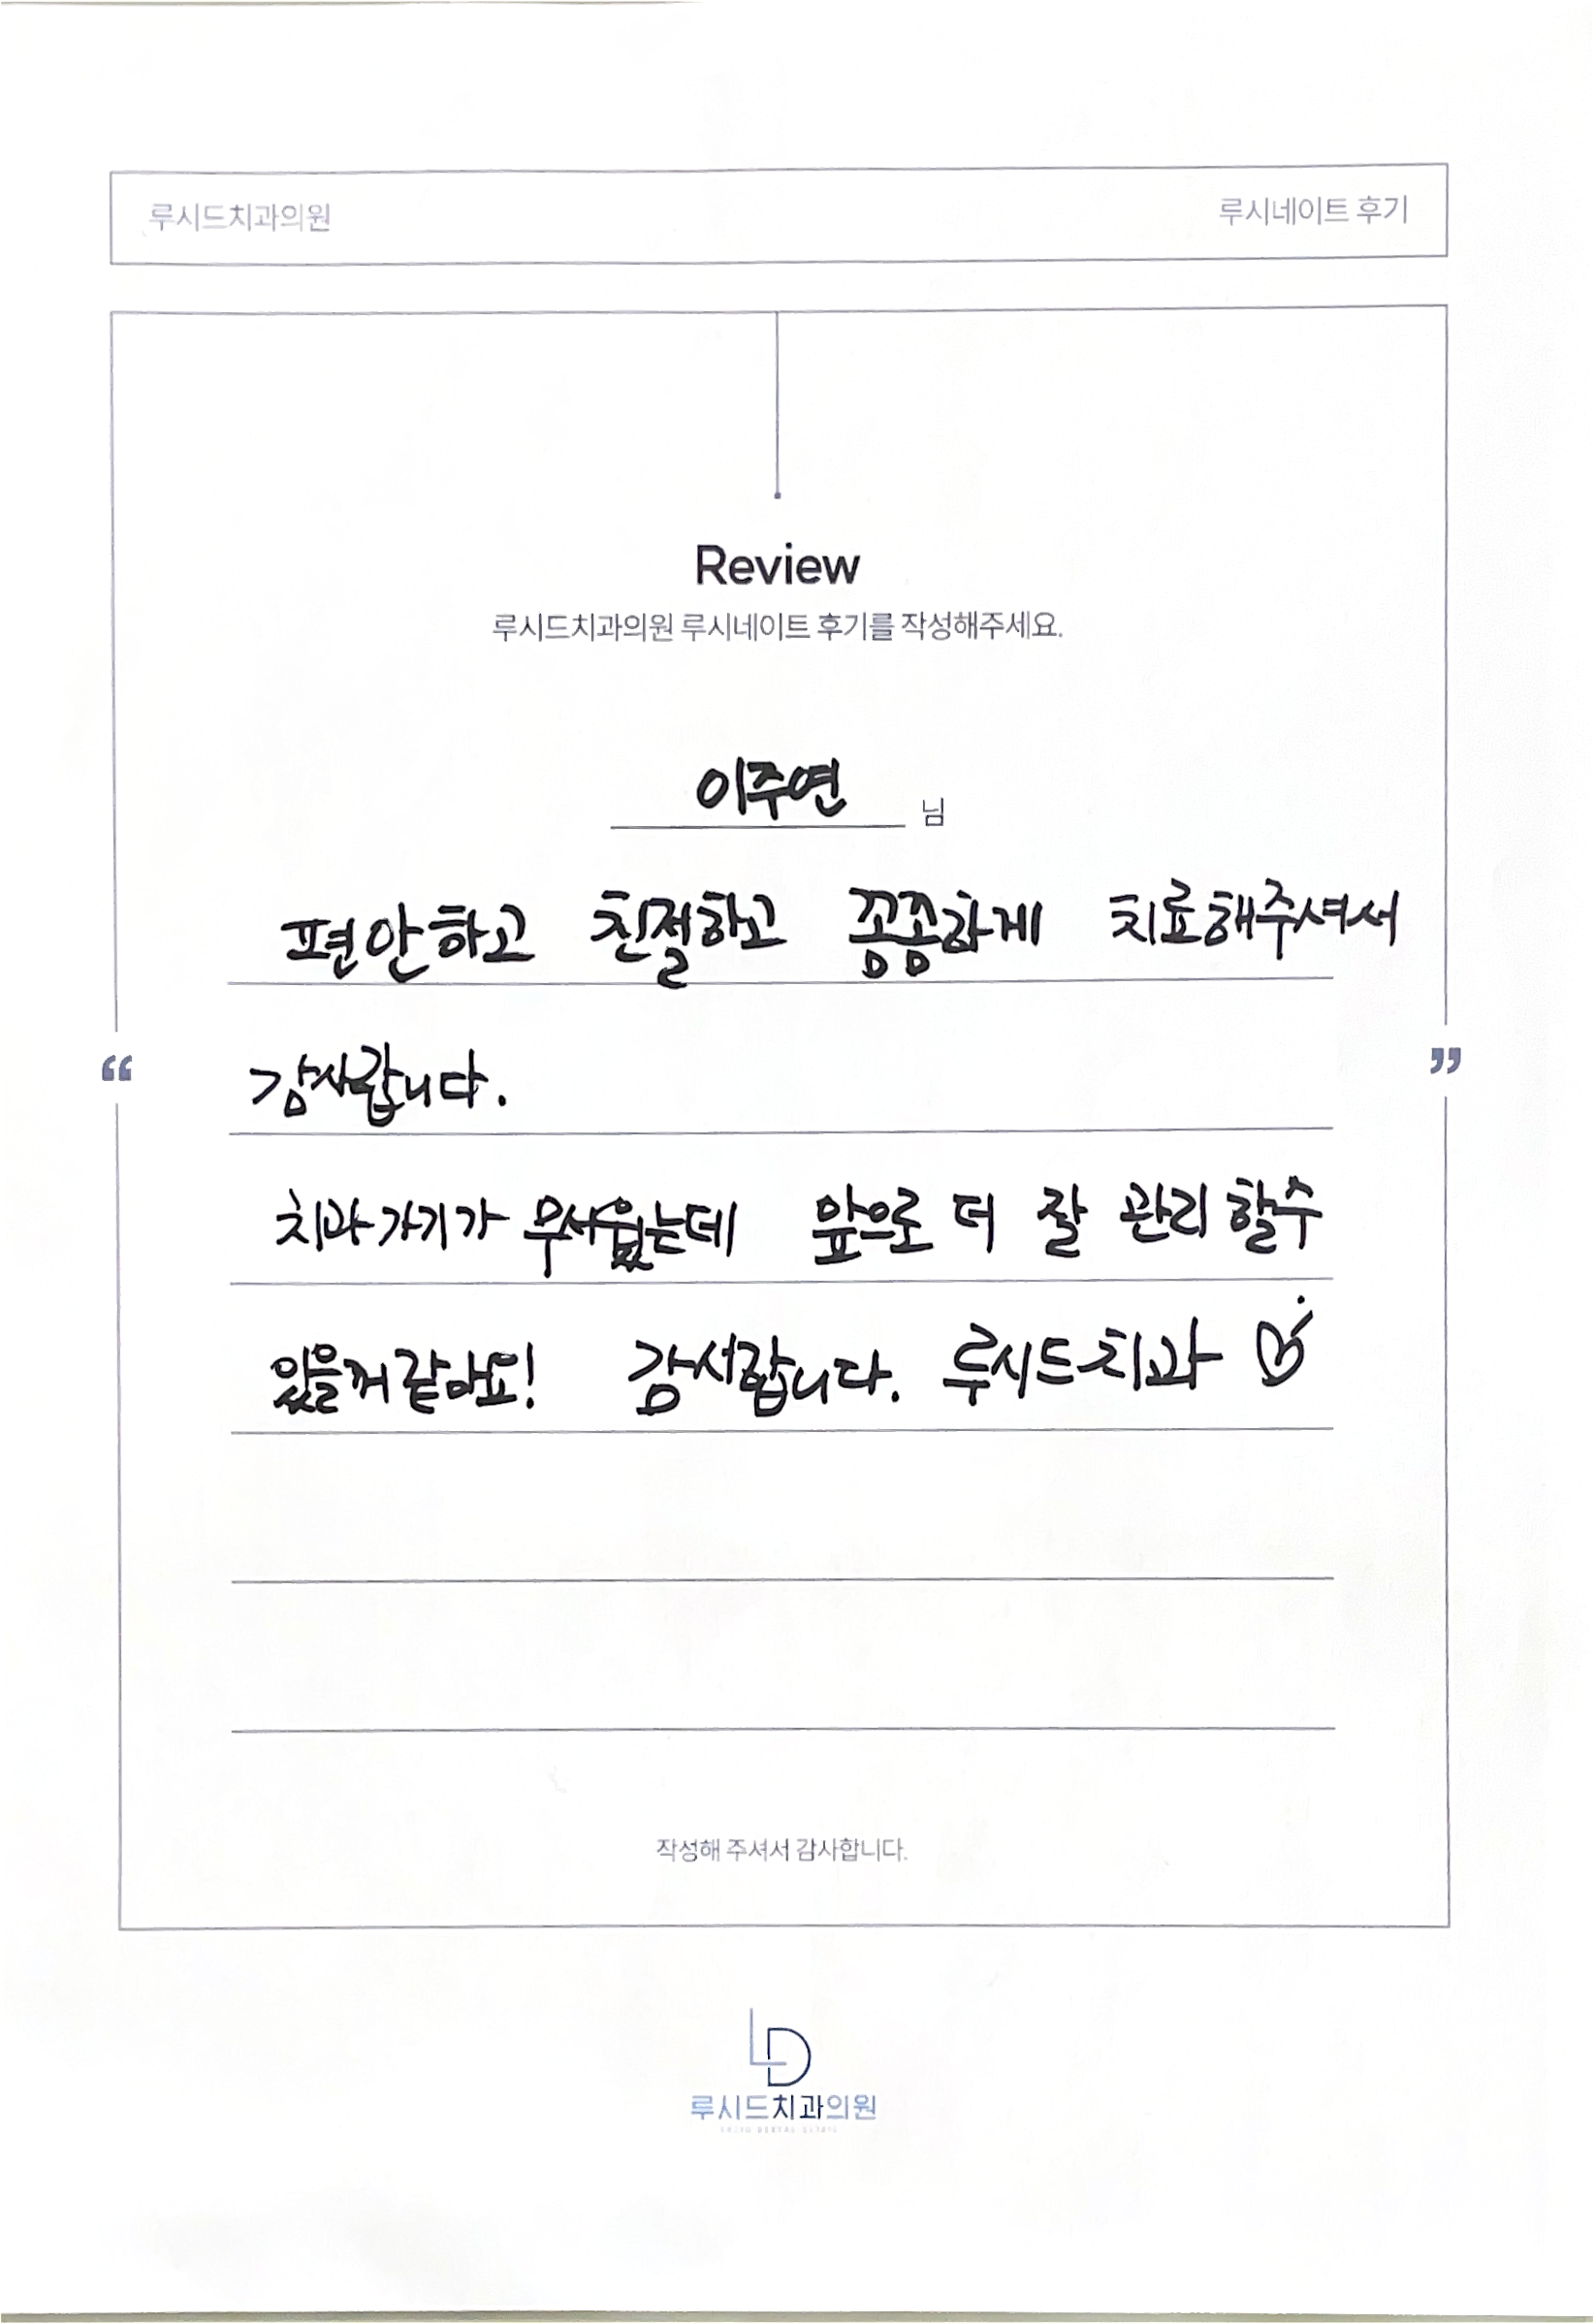 루시드치과의원
루시네이트 후기
Review
루시드치과의원 루시네이트 후기를 작성해주세요.
이주연 님
편안하고 친절하고 꽁꽁하게 치료해주셔서
“ ”
감사합니다.
치과가기가 무서웠는데 앞으로 더 잘 관리할수
있을거같아요! 감사합니다. 루시드치과
작성해 주셔서 감사합니다.
LD
루시드치과의원